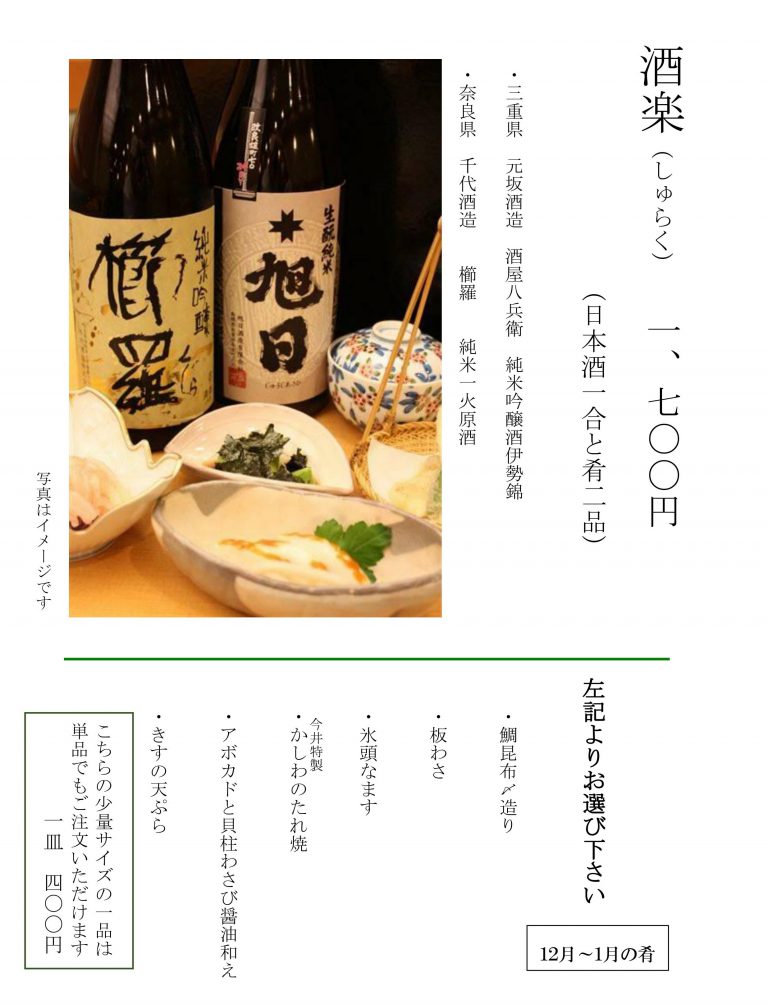 酒楽（しゅらく）　一、七〇〇円
（日本酒一合と肴二品）
・三重県　元坂酒造　酒屋八兵衛　純米吟醸酒伊勢錦
・奈良県　千代酒造　櫛羅　純米一火原酒
生酛純米
旭日
じゅうじあさひ
純米吟醸
櫛羅
くじら
写真はイメージです
左記よりお選び下さい
12月～1月の肴
・鯛昆布〆造り
・板わさ
・氷頭なます
今井特製
・かしわのたれ焼
・アボカドと貝柱わさび醤油和え
・きすの天ぷら
こちらの少量サイズの一品は
単品でもご注文いただけます
一皿　四〇〇円